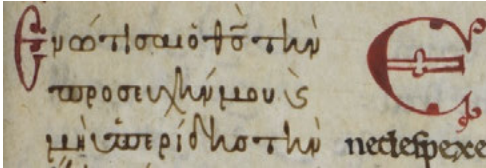 Ενώτισαι ὁ θς̅ τὴν
προσευχήν μου ϗ
μὴ ὑπερίδης τὴν
E
ne despexe